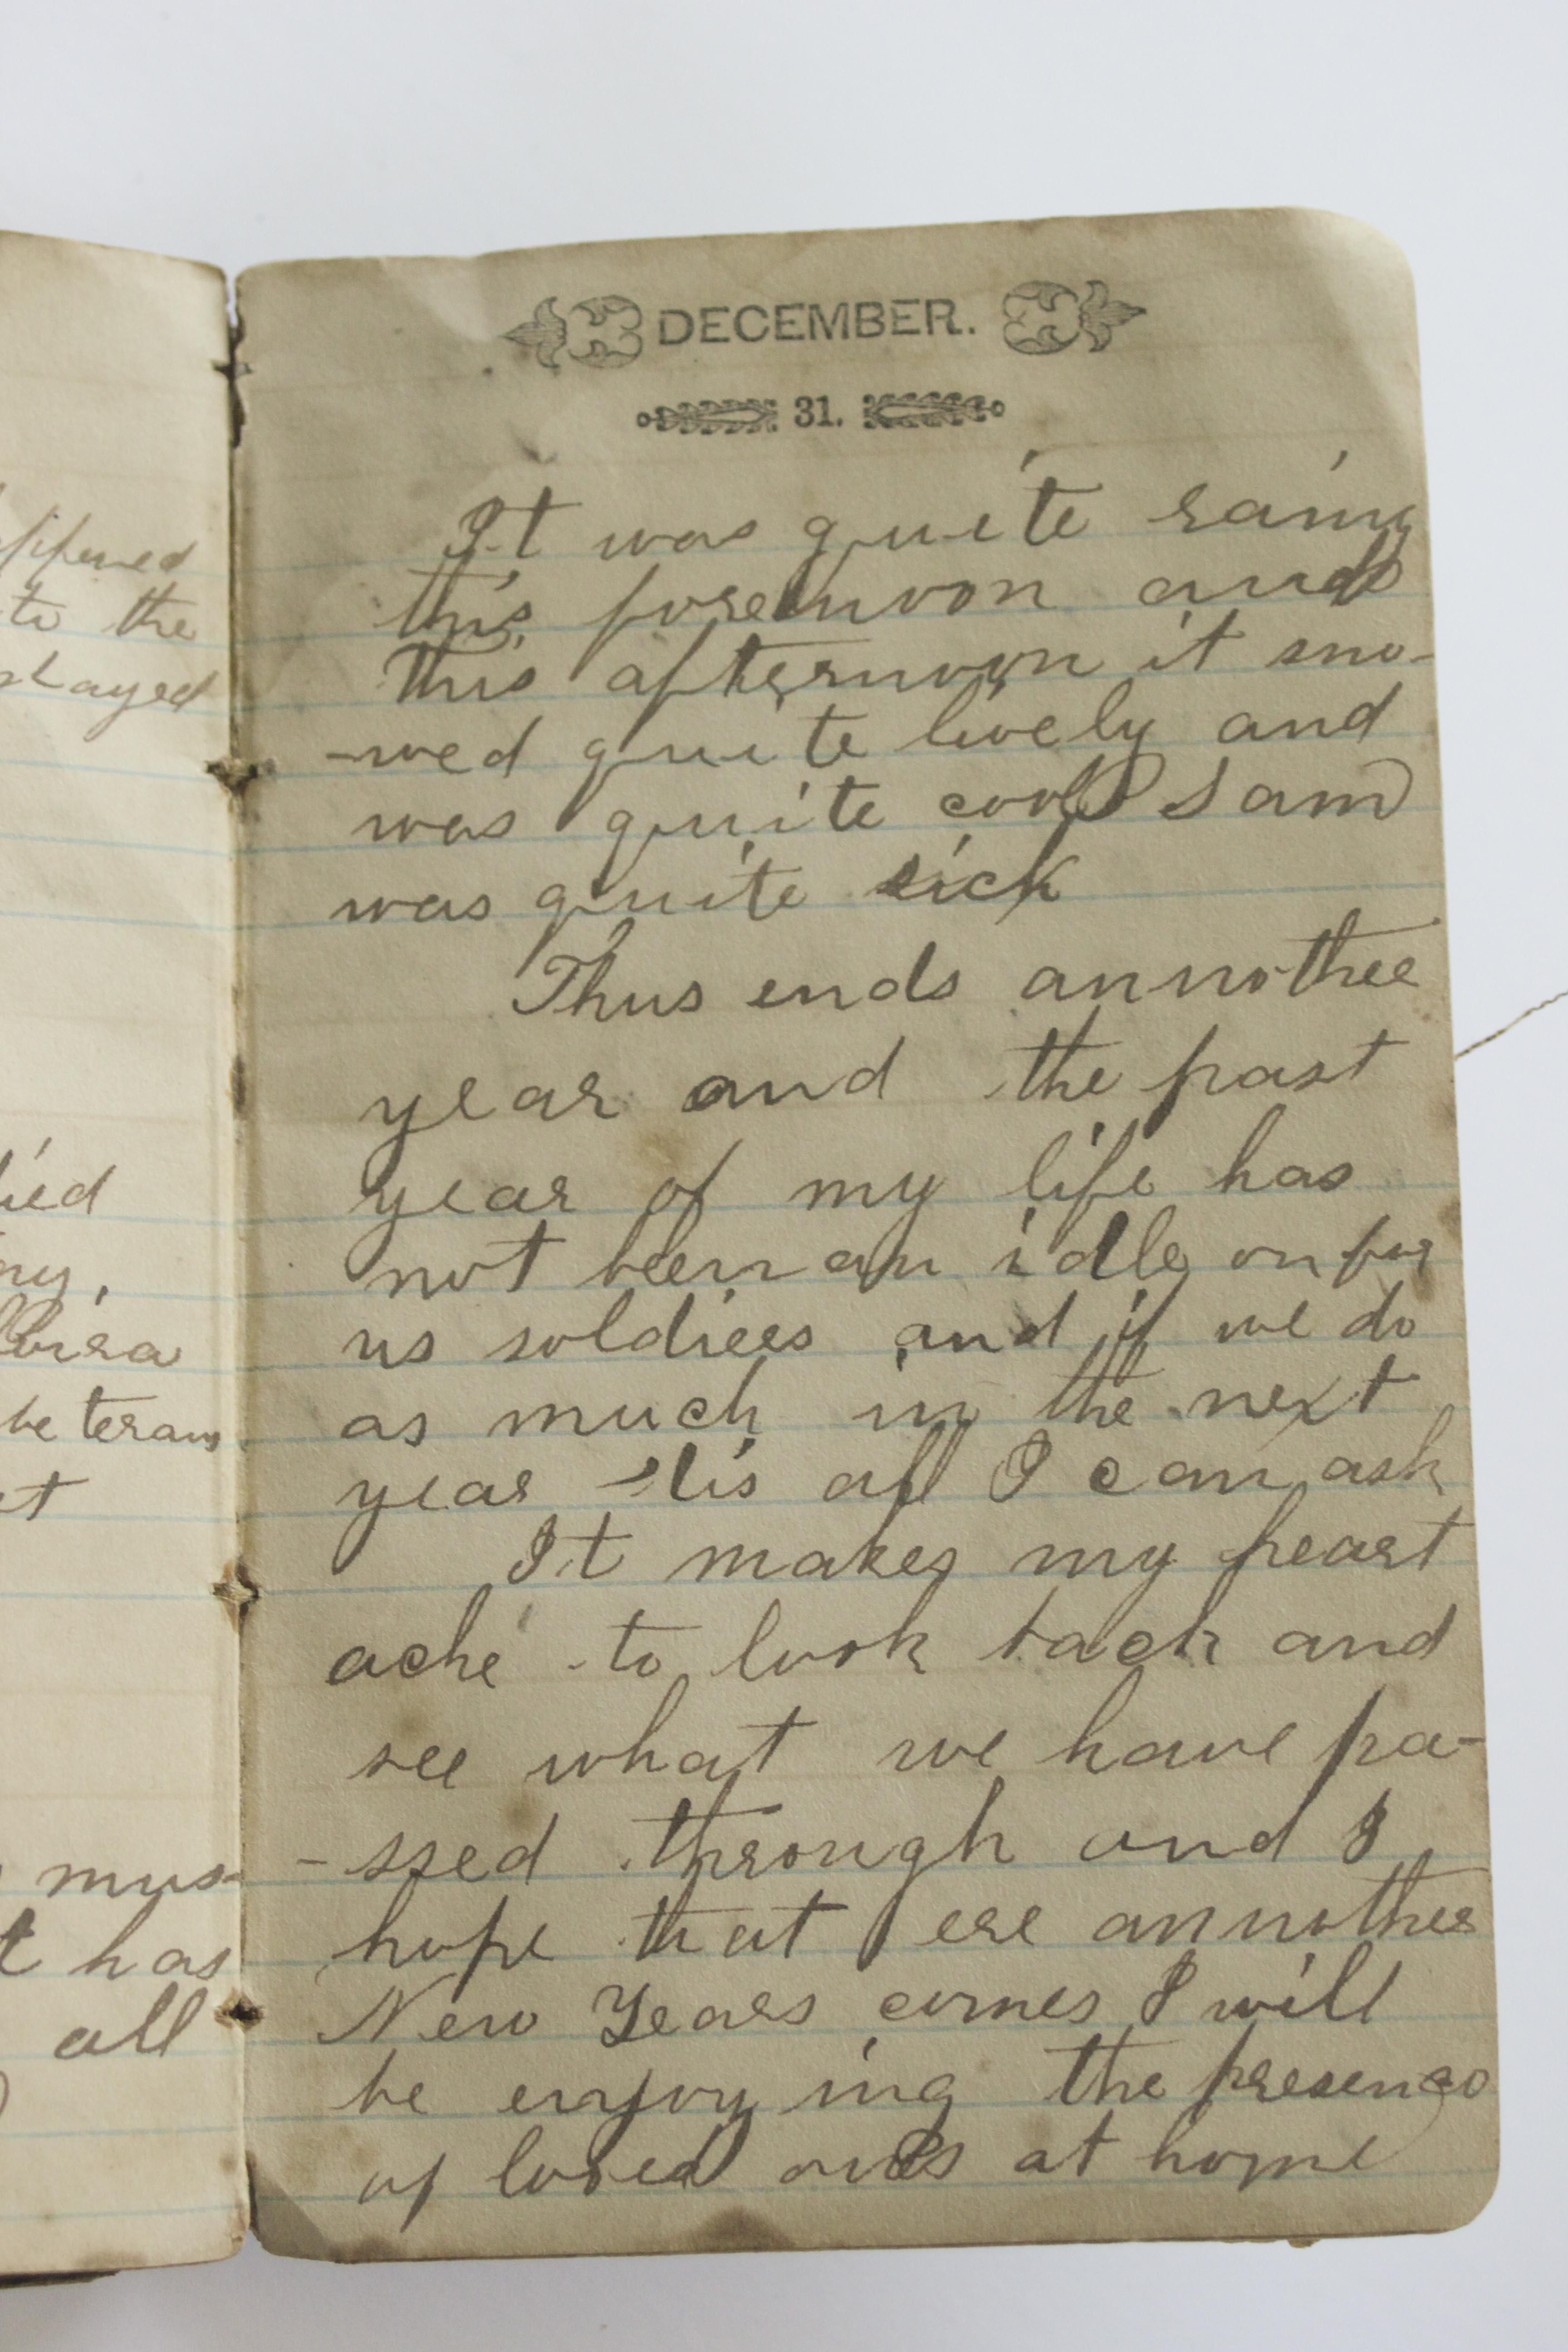 to the
stayed
ied
ny,
veterans
et
mus-
t has
all
DECEMBER.
31.
It was quite rainy
this forenoon and
this afternoon it sno-
-wed quite lively and
was quite cool Sam
was quite sick
Thus ends annother
year and the past
year of my life has
not been an idle on for
us soldiers and if we do
as much in the next
year tis all I can ask
It makes my heart
ache to look back and
see what we have pa-
-ssed through and I
hope that ere annother
New Years comes I will
be enjoying the presence
of loved ones at home